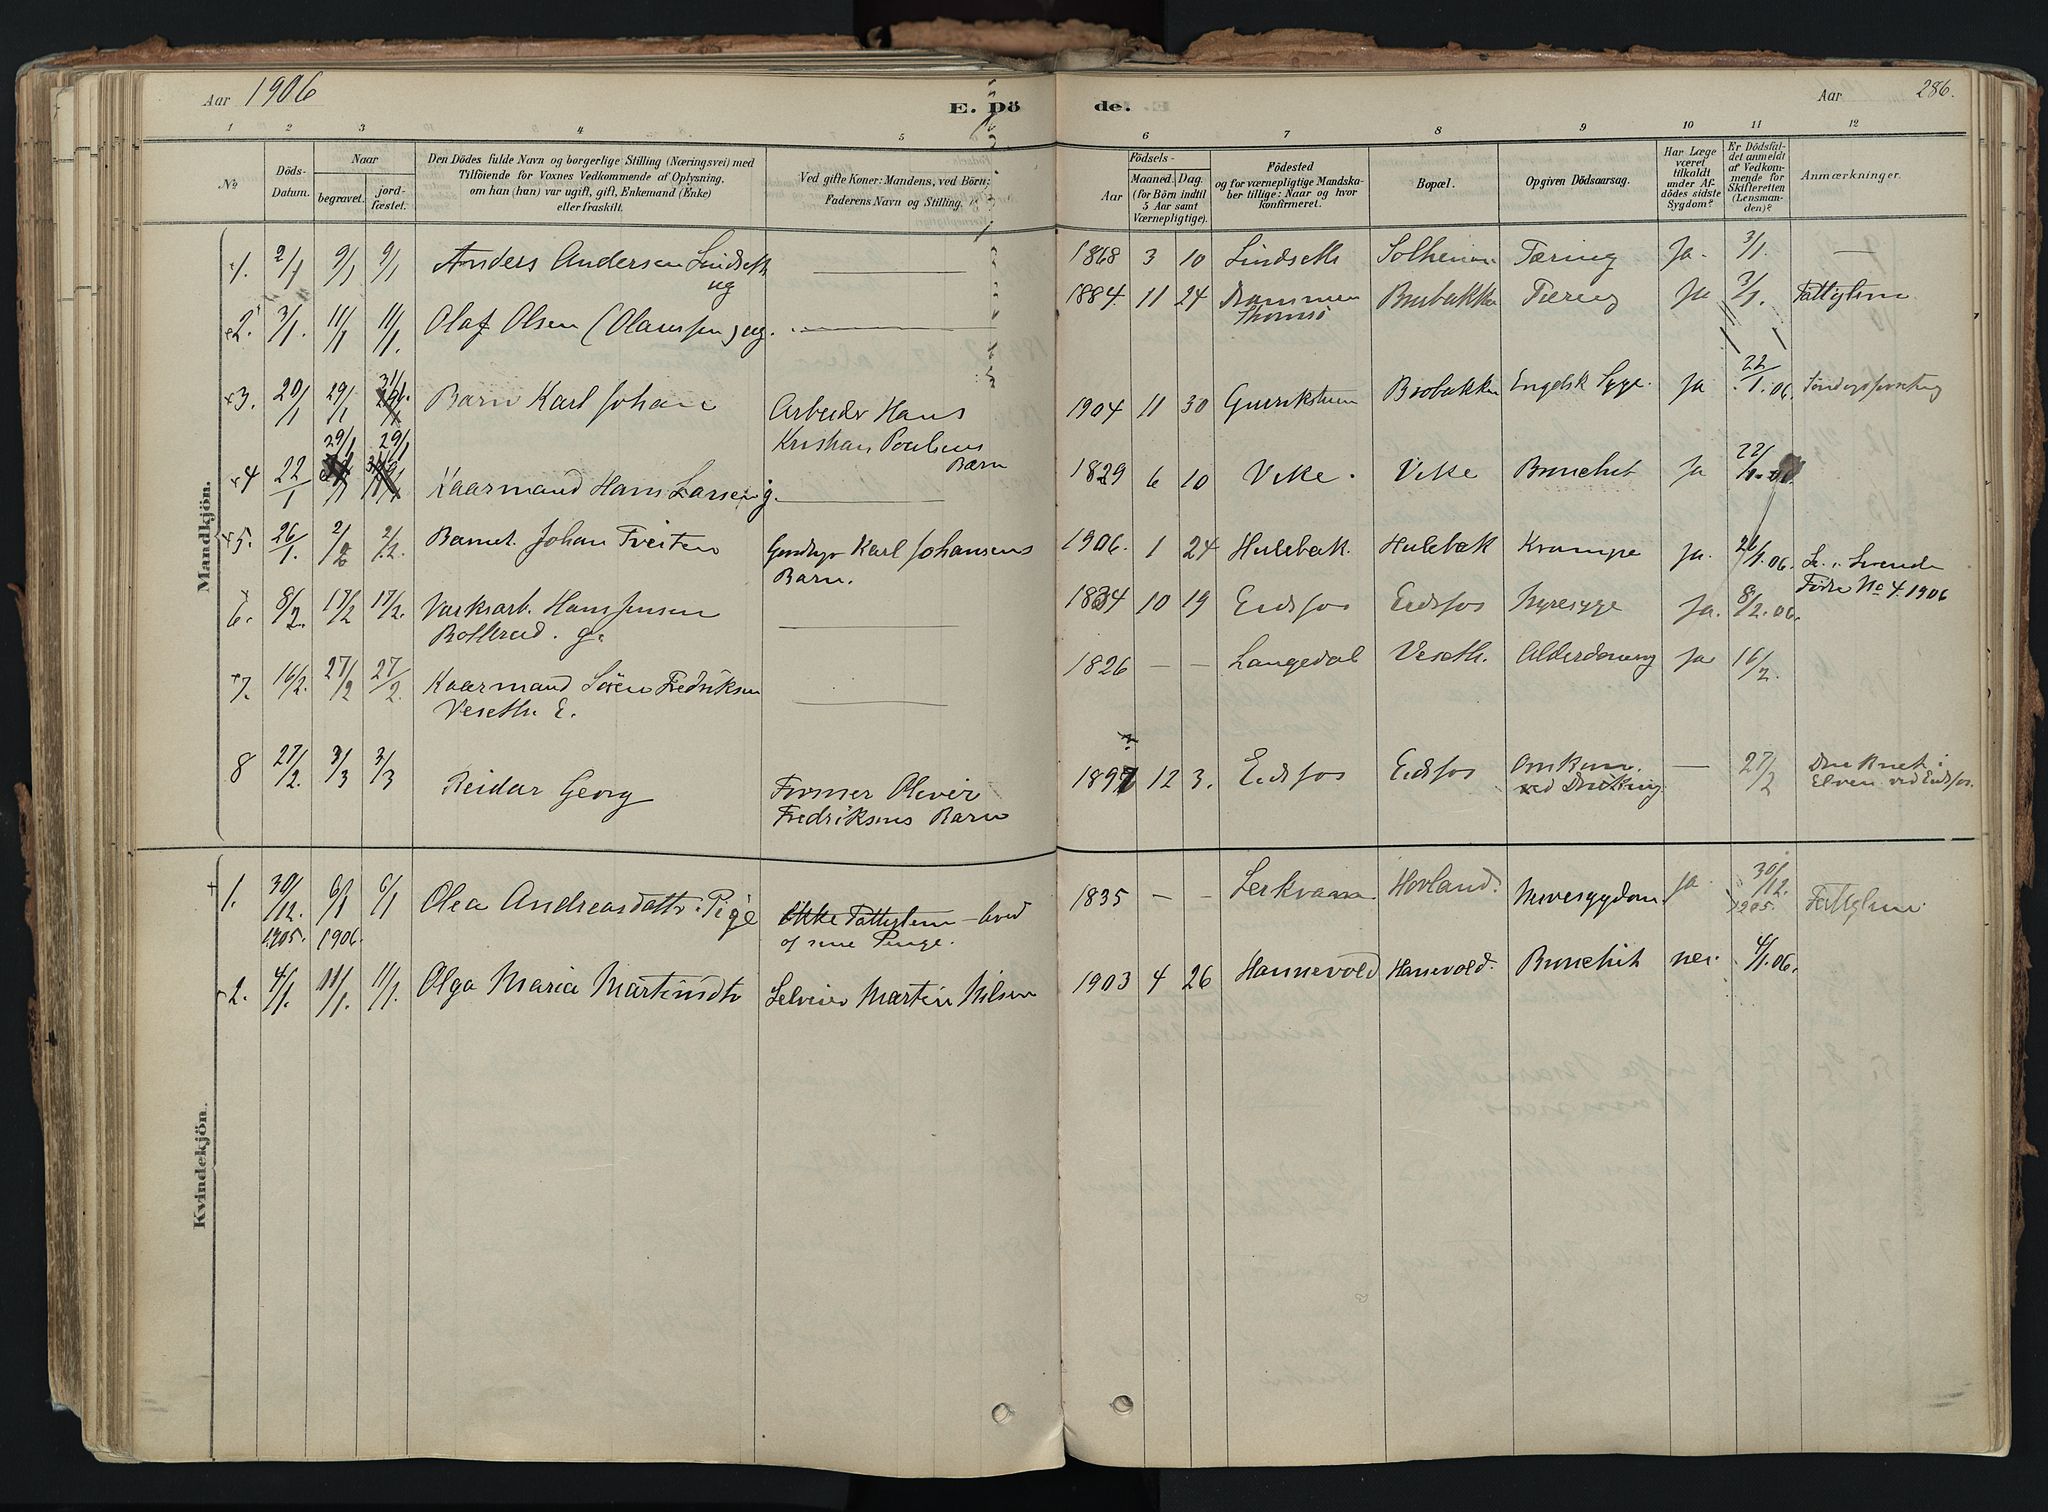 Aar 1906
E. Dö
de.
Aar 286.
1 2 3 4 5 6 7 8 9 10 11 12
No
Döds-
Datum.
Naar
begravet.
jord-
fæstet.
Den Dödes fulde Navn og borgerlige Stilling (Næringsvei) med
Tilföiende for Voxnes Vedkommende af Oplysning.
om han (hun) var ugift, gift, Enkemand (Enke)
eller fraskilt.
Ved gifte Koner: Mandens, ved Börn:
Faderens Navn og Stilling.
Födsels-
Aar
Maaned. Dag.
(for Börn indtil
5 Aar samt
Værnepligtige).
Födested
og for værnepligtige Mandska-
ber tillige: Naar og hvor
konfirmeret.
Bopæl.
Opgiven Dödsaarsag.
Har Læge
været
tilkaldt
under Af-
dödes sidste
Sygdom?
Er Dödsfal-
det anmeldt
af Vedkom-
mende for
Skifteretten
(Lensman-
den)?
Anmærkninger.
Mandkjön.
1. 2/1 9/1 9/1 Anders Andersen Lindseth 1868 3 10 Lindseth Tæring Ja. 3/1. —
ug
2. 3/1. 11/1 11/1. Olaf Olsen ug. 1884. 11 24 Drammen Tæring Ja 3/1. Fattiglem
3. 20/1 29/1 31/1 Barn Karl Johan Arbeider Hans 1904 11 30 Brobakken Engelsk Syge. Ja 22/1.06.
Kristian Poulsens
Barn
4 22/1 29/1 29/1 Kaarmand Hans Larsen g. 1829 6 10 Veke. Veke Bronchit Ja 22/1
5. 26/1. 2/2 2/2. Barnet Johan Tveiten Karl Johansens 1906. 1 24 Hulebak. Hulebak Krampe Ja.
Barn.
Födte No 4. 1906
6. 8/2. 17/2 17/2. Værksarb. Hans Jensen 1834 10 19 Eidsfos Eidsfos Nyresyge Ja. 8/2.06.
g.
7. 16/2. 27/2 27/2. Kaarmand Sören Fredriksen 1826 — — Langedal Veseth. Ja 16/2.
Veseth. E.
8 27/2. 3/3 3/3 Reidar Georg Former Oliver 1897 12 3. Eidsfos Eidsfos Omkom. — 27/2 Druknet i
Fredriksens Barn ved Drukning Elven ved Eidsfos.
Kvindekjön.
1. 30/12. 6/1 6/1 Olea Andreasdattr. Pige Ikke Fattiglem – leved 1835 — — Hovland. Ja. 30/12. Fattiglem.
1905. 1906. af sine Penge. 1905.
2. 4/1. 11/1. 11/1. Olga Maria Martinsdtr Selveier Martin Nilsen 1903 4 26 Hannevold Hanevold. Bronchit nei. 4/1.06.